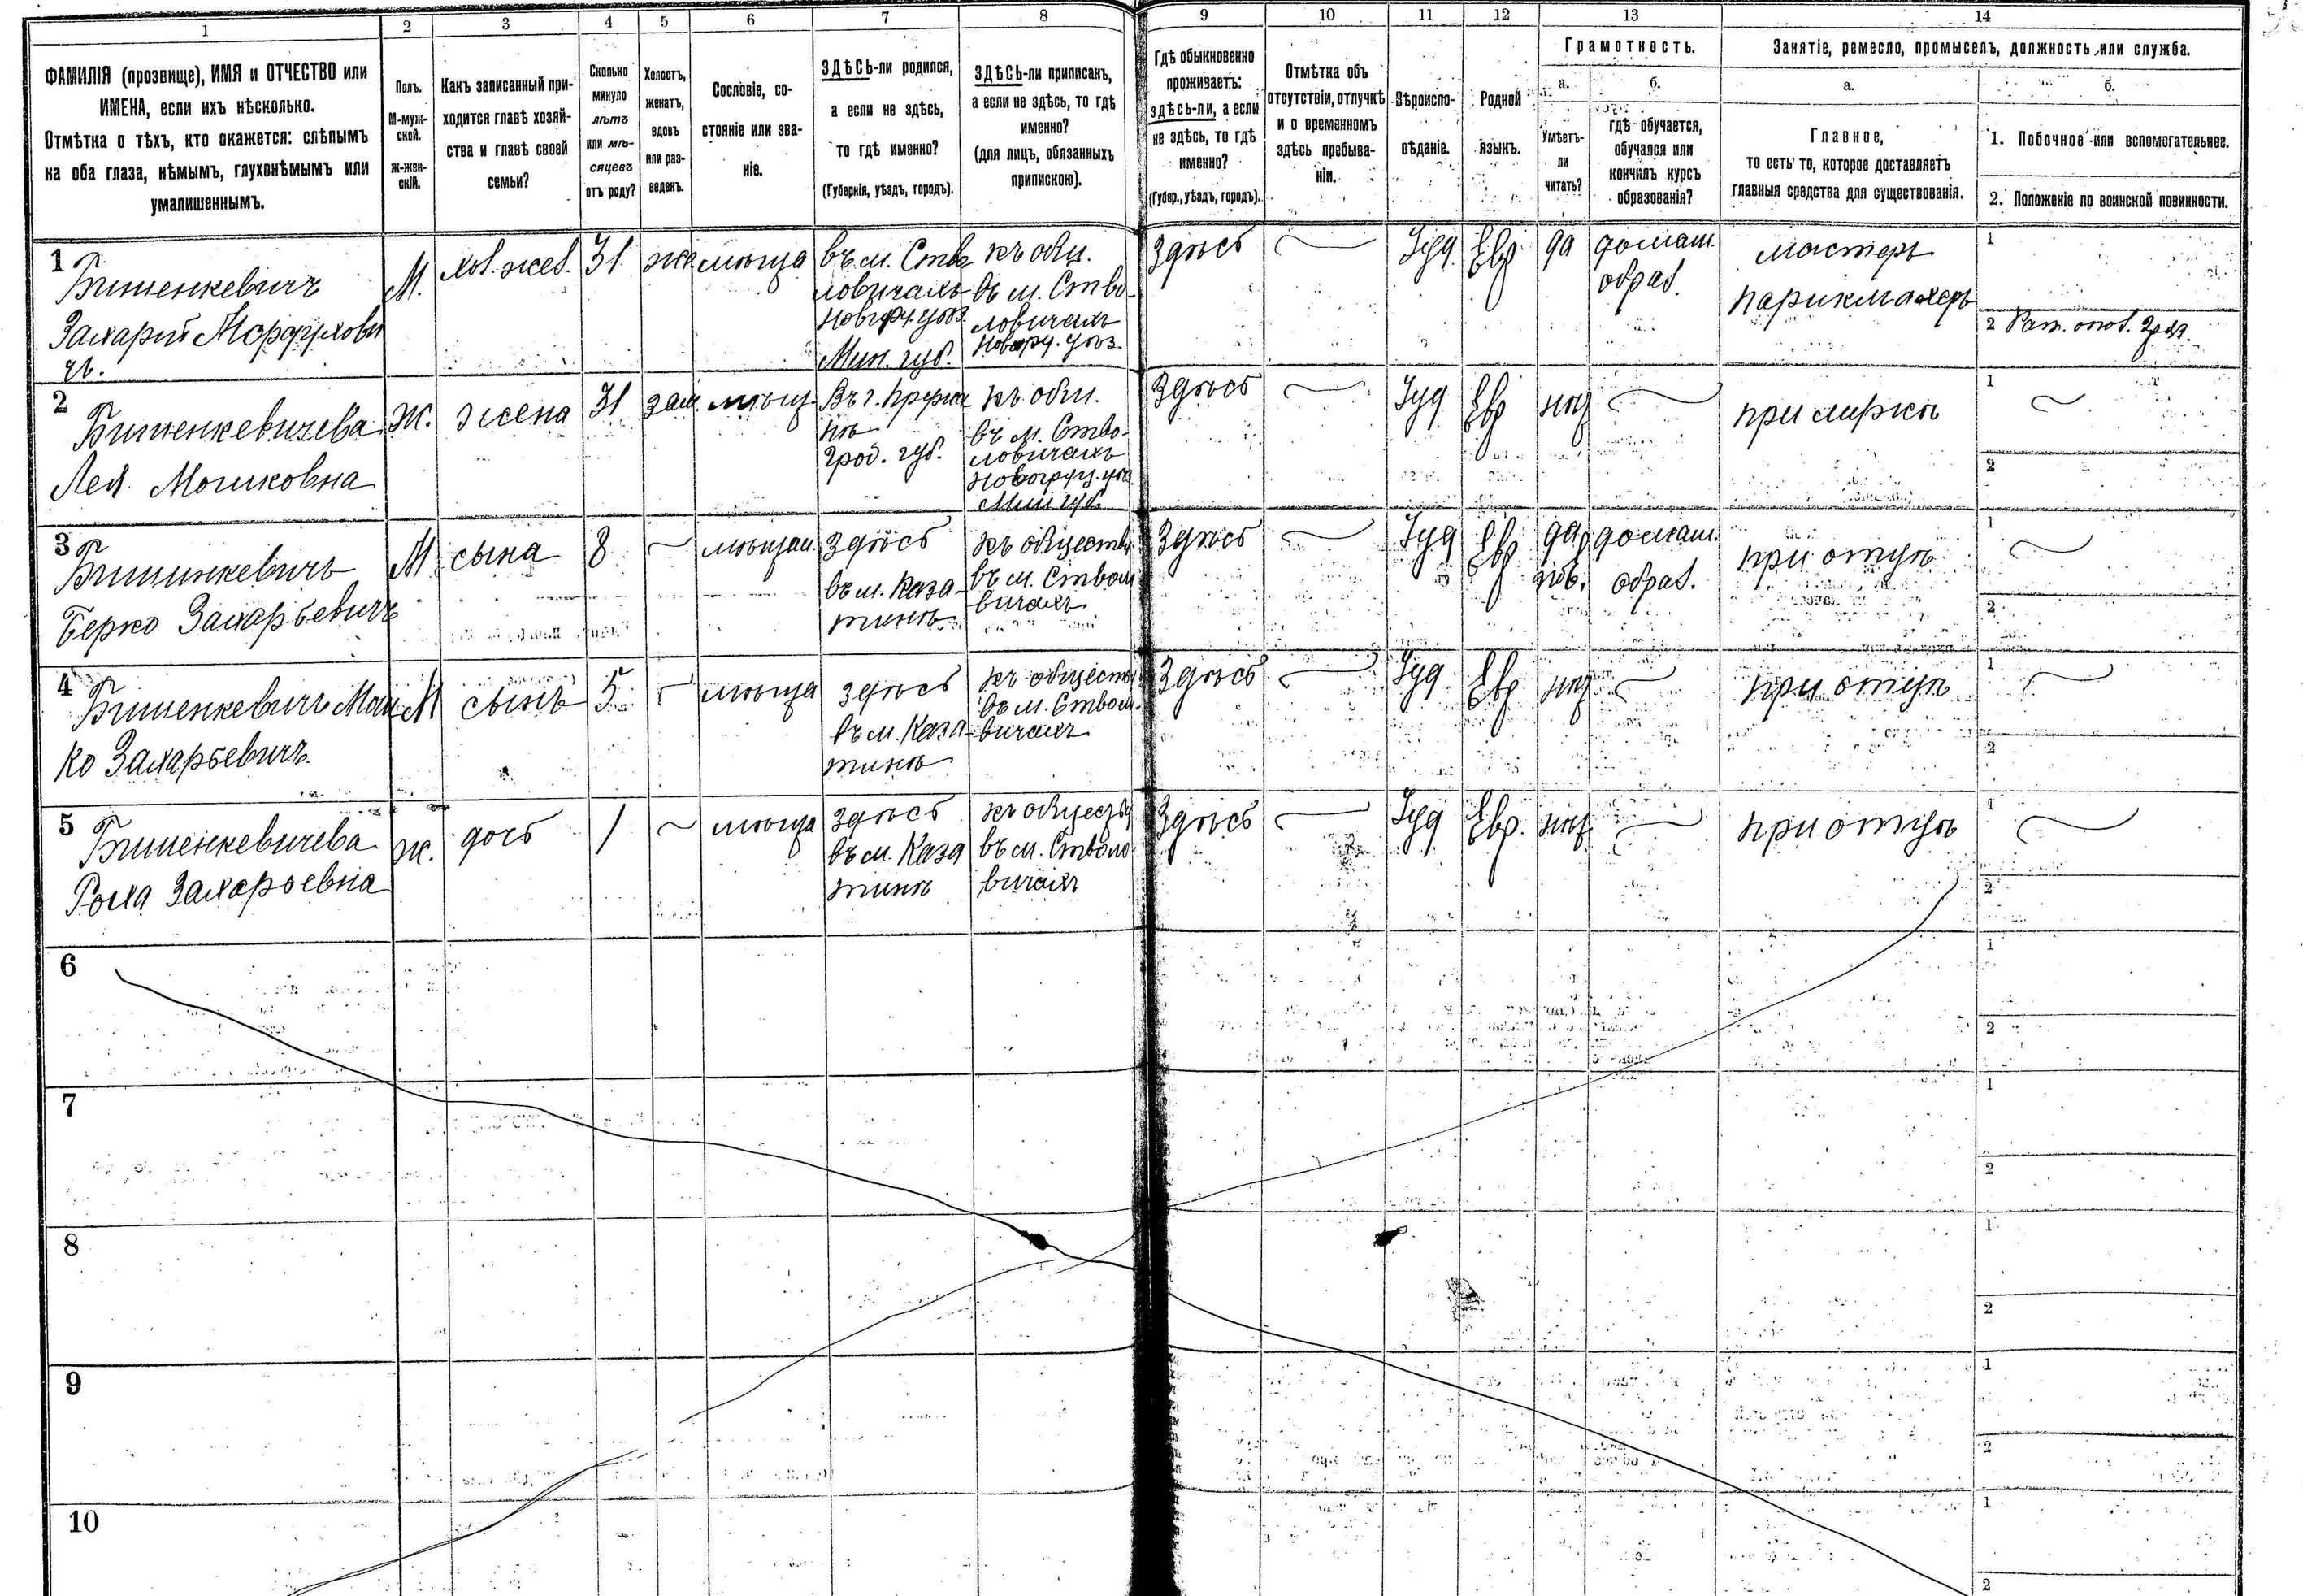 1 2 3 4 5 6 7 8 9 10 11 12 13 14
ФАМИЛІЯ (прозвище), ИМЯ и ОТЧЕСТВО или
ИМЕНА, если ихъ нѣсколько.
Отмѣтка о тѣхъ, кто окажется: слѣпымъ
на оба глаза, нѣмымъ, глухонѣмымъ или
умалишеннымъ.
Полъ.
М-муж-
ской.
Ж-жен-
скій.
Какъ записанный при-
ходится главѣ хозяй-
ства и главѣ своей
семьи?
Сколько
минуло
лѣтъ
или мѣ-
сяцевъ
отъ роду?
Холостъ,
женатъ,
вдовъ
или раз-
веденъ.
Сословіе, со-
стояніе или зва-
ніе.
ЗДѢСЬ-ли родился,
а если не здѣсь,
то гдѣ именно?
(Губернія, уѣздъ, городъ).
ЗДѢСЬ-ли приписанъ,
а если не здѣсь, то гдѣ
именно?
(для лицъ, обязанныхъ
припискою).
Гдѣ обыкновенно
проживаетъ:
здѣсь-ли, а если
не здѣсь, то гдѣ
именно?
(Губер., уѣздъ, городъ).
Отмѣтка объ
отсутствіи, отлучкѣ
и о временномъ
здѣсь пребыва-
ніи.
Вѣроиспо-
вѣданіе.
Родной
языкъ.
Грамотность.
а.
Умѣетъ-
ли
читать?
б.
гдѣ обучается,
обучался или
кончилъ курсъ
образованія?
Занятіе, ремесло, промыселъ, должность или служба.
а.
Главное,
то есть то, которое доставляетъ
главныя средства для существованія.
б.
1. Побочное или вспомогательное.
2. Положеніе по воинской повинности.
1
Бишенкевичъ
Захарій Мордухови
чъ.
М.
31
мѣща
въ м. Ство
ловичахъ
Новгр. уѣз.
Мин. губ.
къ общ.
въ м. Ство-
ловичахъ
Новогру. уѣз.
Здѣсь
Іуд.
Евр.
да
домаш.
образ.
мастеръ
парикмахеръ
1
2
2
Бишенкевичева
Лея Мошковна
Ж.
жена
31
зам.
мѣщ.
Въ г. Пружа
нѣ
Грод. губ.
къ общ.
въ м. Ство-
ловичахъ
Новогруд. уѣз
Мин губ.
Здѣсь
Іуд
Евр
нѣт
при мужѣ
1
2
3
Бишинкевичъ
Берко Захарьевичъ
М
сына
8
мѣщан.
Здѣсь
въ м. Каза-
тинѣ
къ обществу
въ м. Ствол
вичахъ
Здѣсь
Іуд
Евр
да
домаш.
образ.
при отцѣ
1
2
4
Бишенкевичъ Мош
ко Захарьевичъ.
М
сынъ
5
мѣща
здѣсь
въ м. Каза-
тинѣ
къ общест
въ м. Ствол
вичахъ
Здѣсь
Іуд
Евр
нѣт
при отцѣ
1
2
5
Бишенкевичева
Роха Захарьевна
ж.
дочь
1
мѣща
здѣсь
въ м. Каза
тинѣ
къ общест
въ м. Ствола
вичахъ
Здѣсь
Іуд
Евр.
нѣт
при отцѣ
1
2
6
1
2
7
1
2
8
1
2
9
1
2
10
1
2